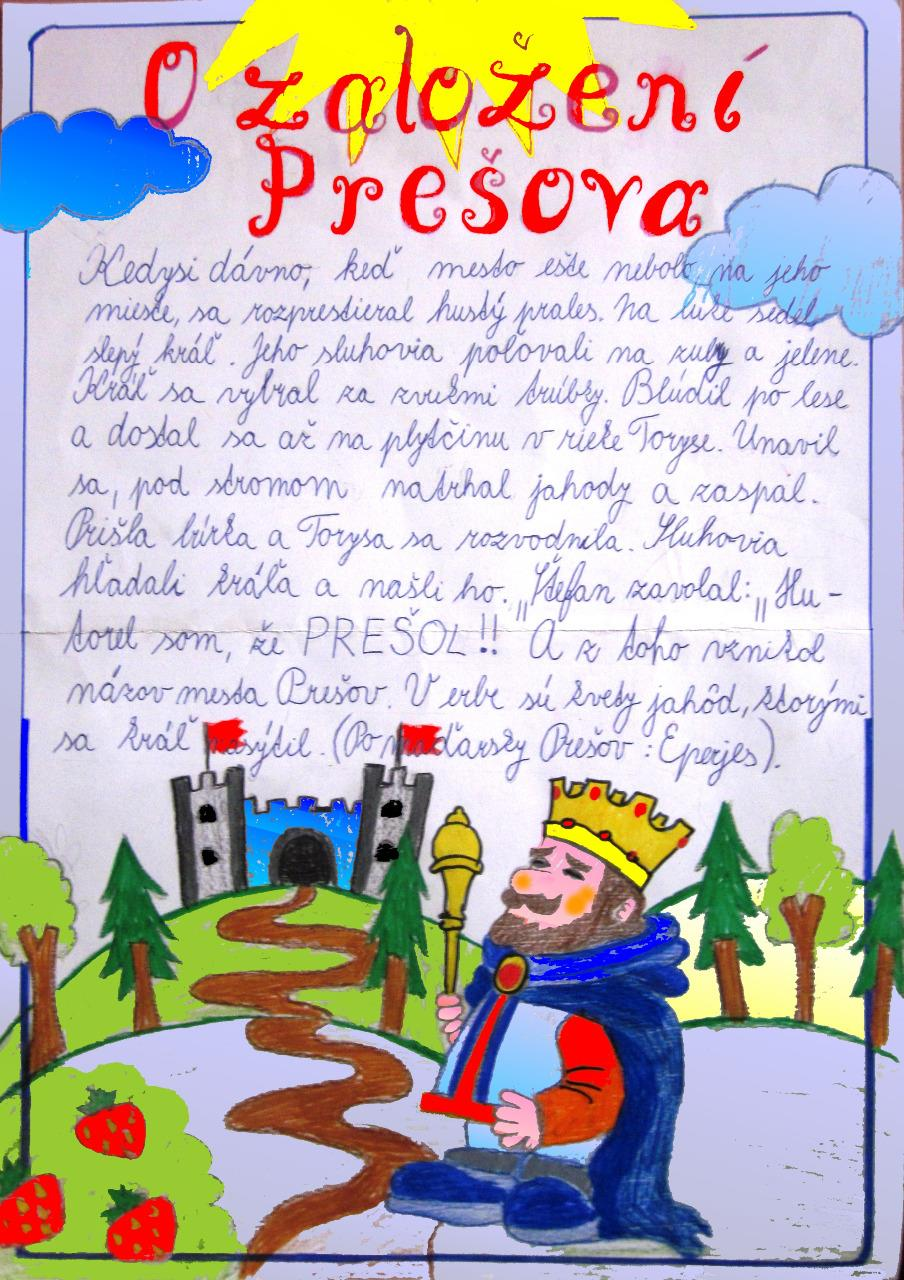 O založení
Prešova
Kedysi dávno, keď mesto ešte nebolo na jeho
mieste, sa rozprestieral hustý prales. Na lúke sedel
slepý kráľ. Jeho sluhovia poľovali na zubry a jelene.
Kráľ sa vybral za zvukmi trúbky. Blúdil po lese
a dostal sa až na plytčinu v rieke Toryse. Unavil
sa, pod stromom natrhal jahody a zaspal.
Prišla búrka a Torysa sa rozvodnila. Sluhovia
hľadali kráľa a našli ho. „Štefan zavolal: „Hu-
torel som, že PREŠOL!! A z toho vznikol
názov mesta Prešov. V erbe sú kvety jahôd, ktorými
sa kráľ nasýtil. (Po maďarsky Prešov : Eperjes).